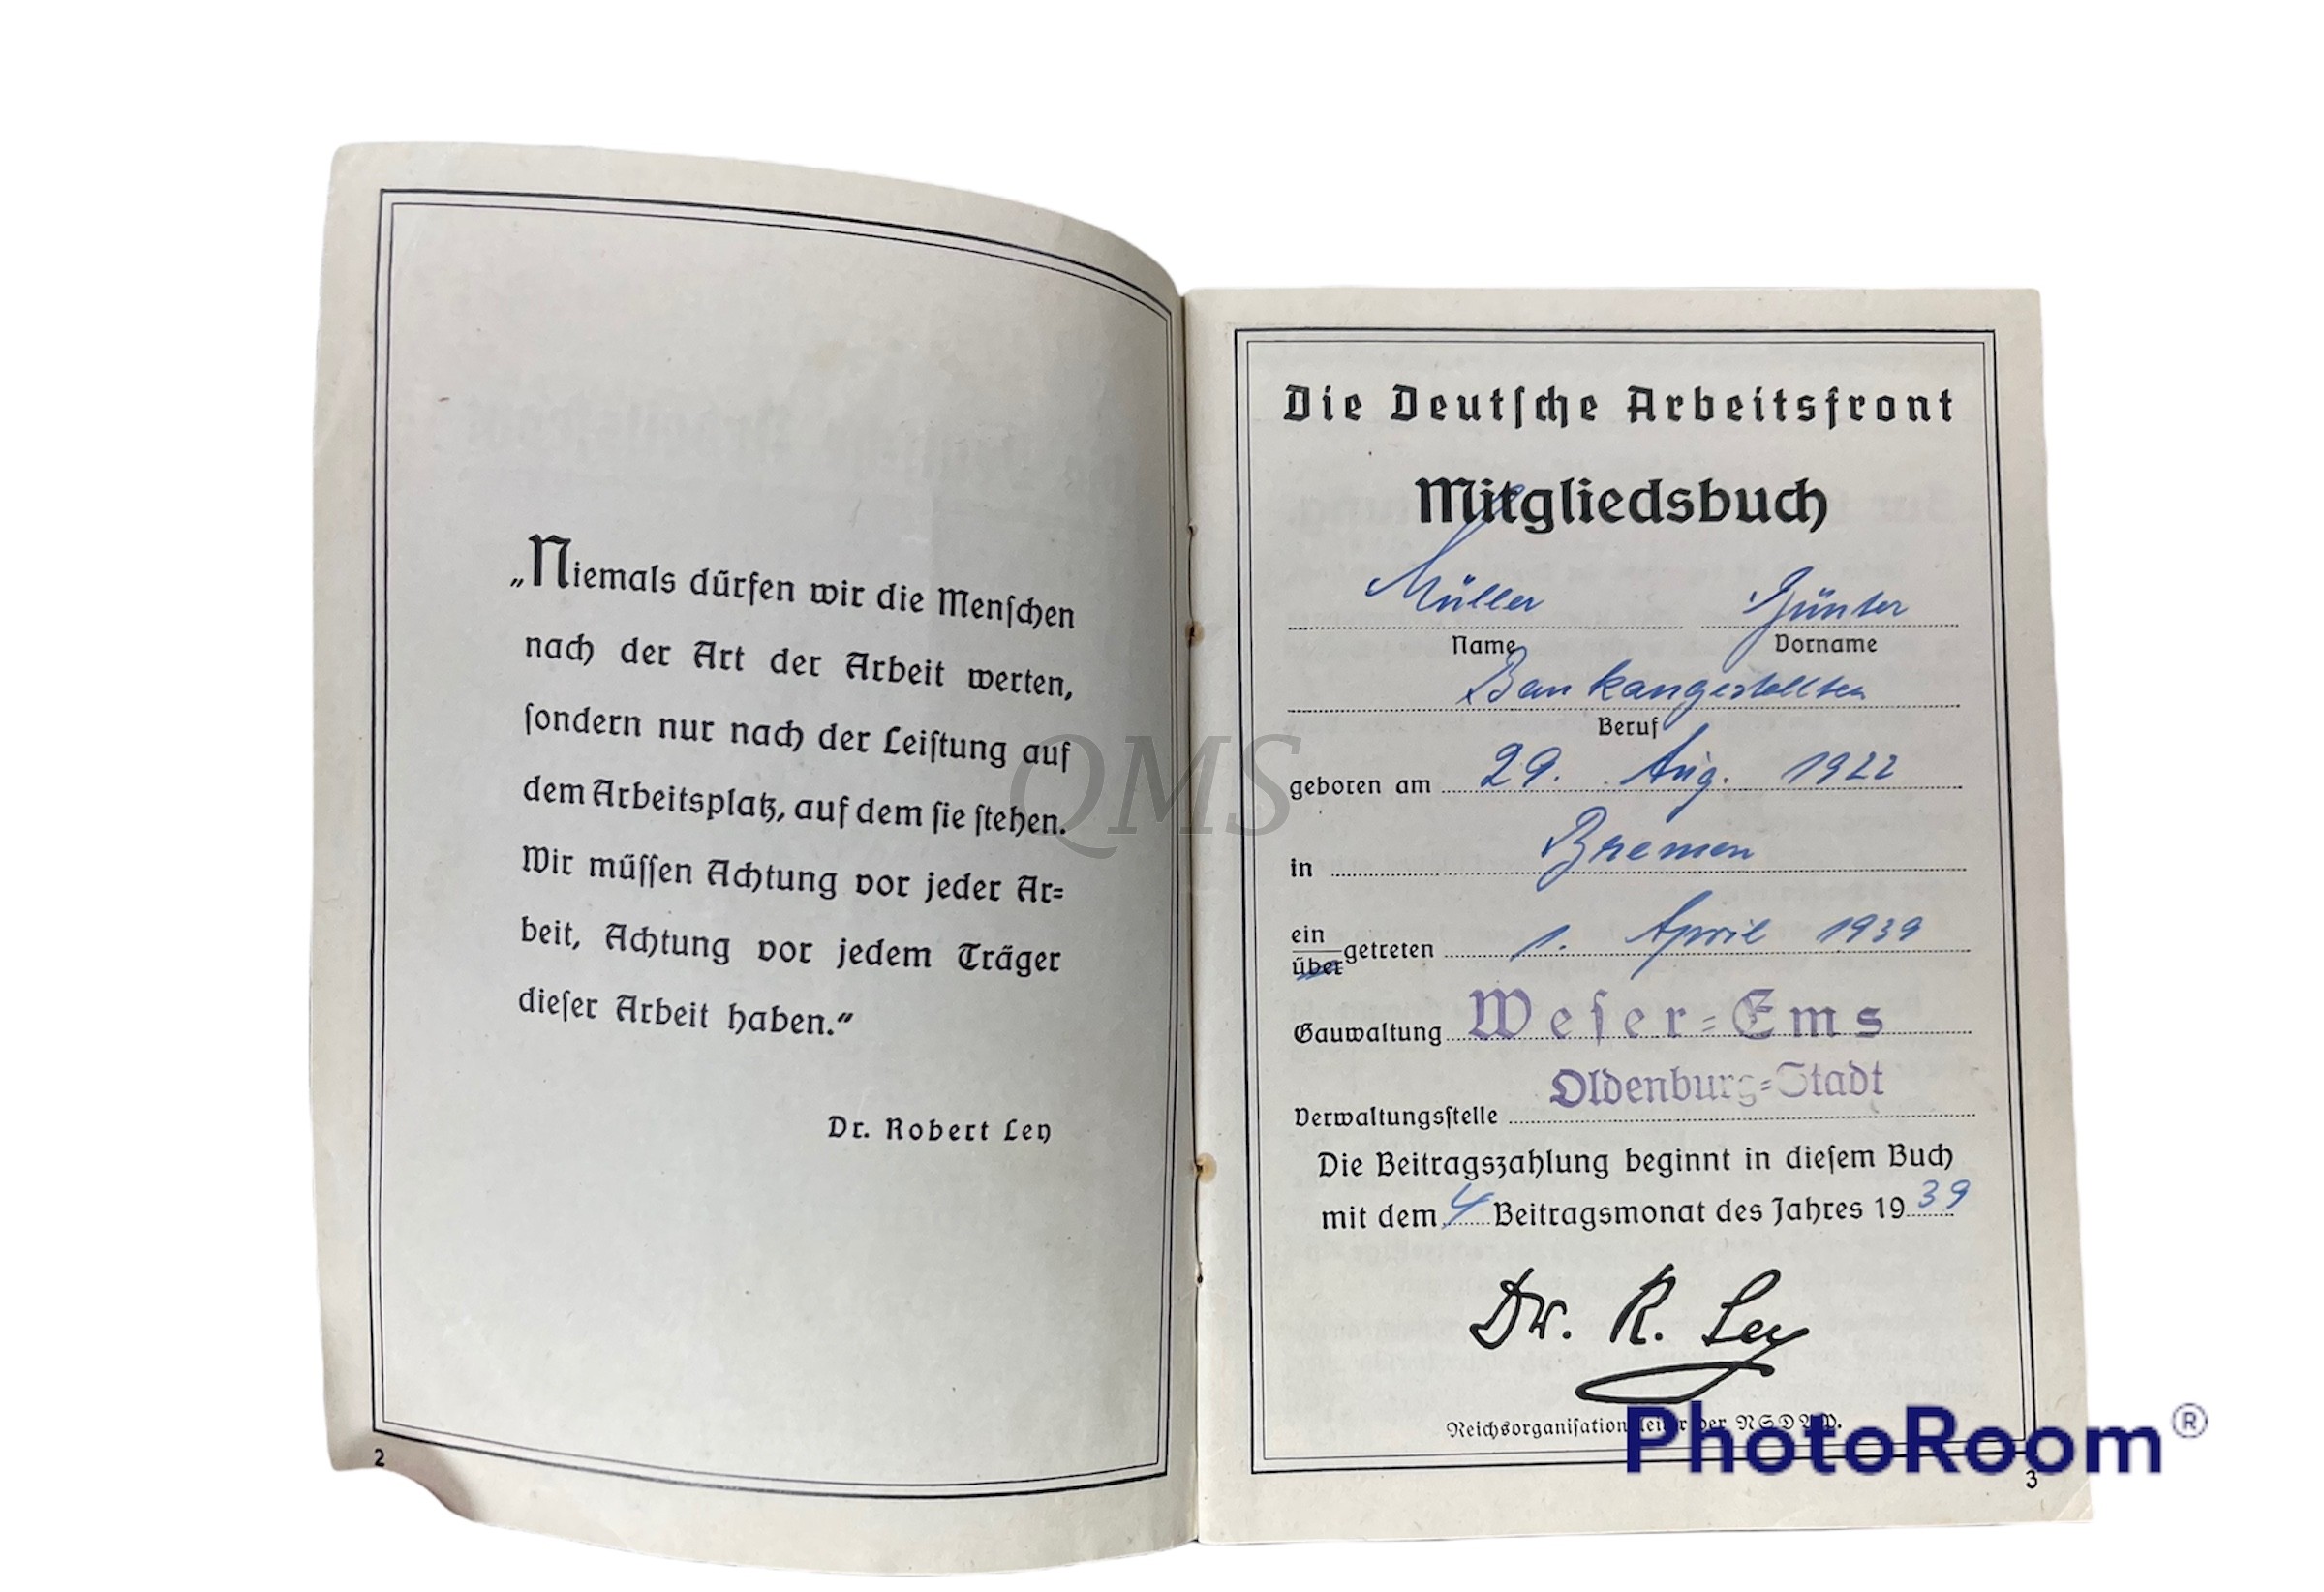 „Niemals dürfen wir die Menſchen
nach der Art der Arbeit werten,
ſondern nur nach der Leiſtung auf
dem Arbeitsplatz, auf dem ſie ſtehen.
Wir müſſen Achtung vor jeder Ar=
beit, Achtung vor jedem Träger
dieſer Arbeit haben.“
Dr. Robert Ley
2
Die Deutſche Arbeitsfront
Mitgliedsbuch
Müller Günter
Name Vorname
Bankangestellter
Beruf
geboren am 29. Aug. 1922
in Bremen
ein
über getreten 1. April 1939
Gauwaltung Weſer=Ems
Verwaltungsſtelle Oldenburg=Stadt
Die Beitragszahlung beginnt in dieſem Buch
mit dem 4 Beitragsmonat des Jahres 19 39
Dr. R. Ley
Reichsorganiſationsleiter der NSDAP.
3
QMS
PhotoRoom®